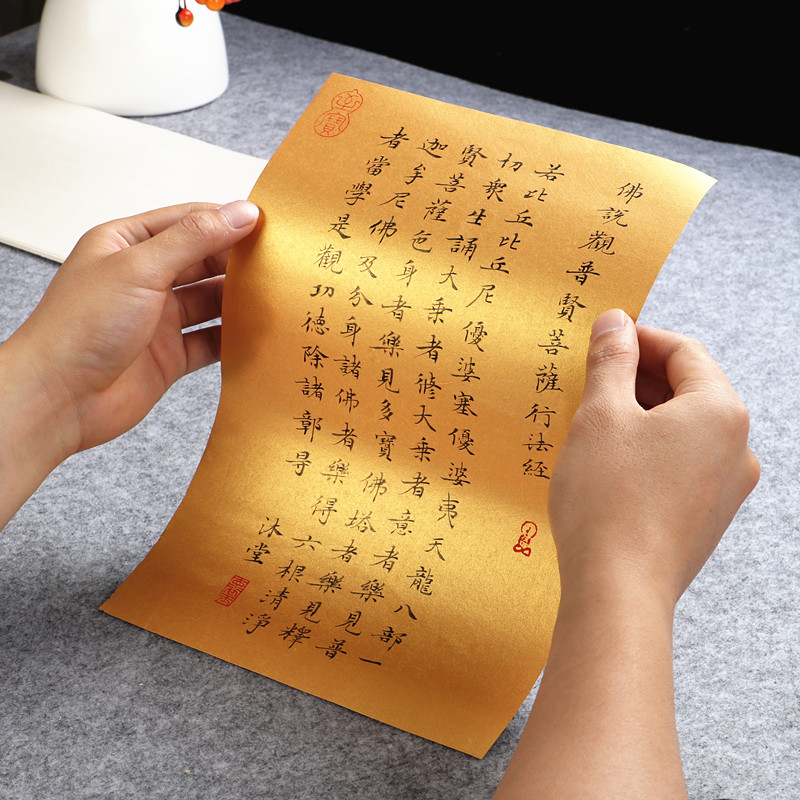 佛說觀普賢菩薩行法經
若比丘比丘尼優婆塞優婆夷天龍八部一
切衆生誦大乘者修大乘者意者樂見普
賢菩薩色身者樂見多寶佛塔者樂見釋
迦牟尼佛及分身諸佛者樂得六根清淨
者當學是觀功德除諸鄣㝵
沐堂